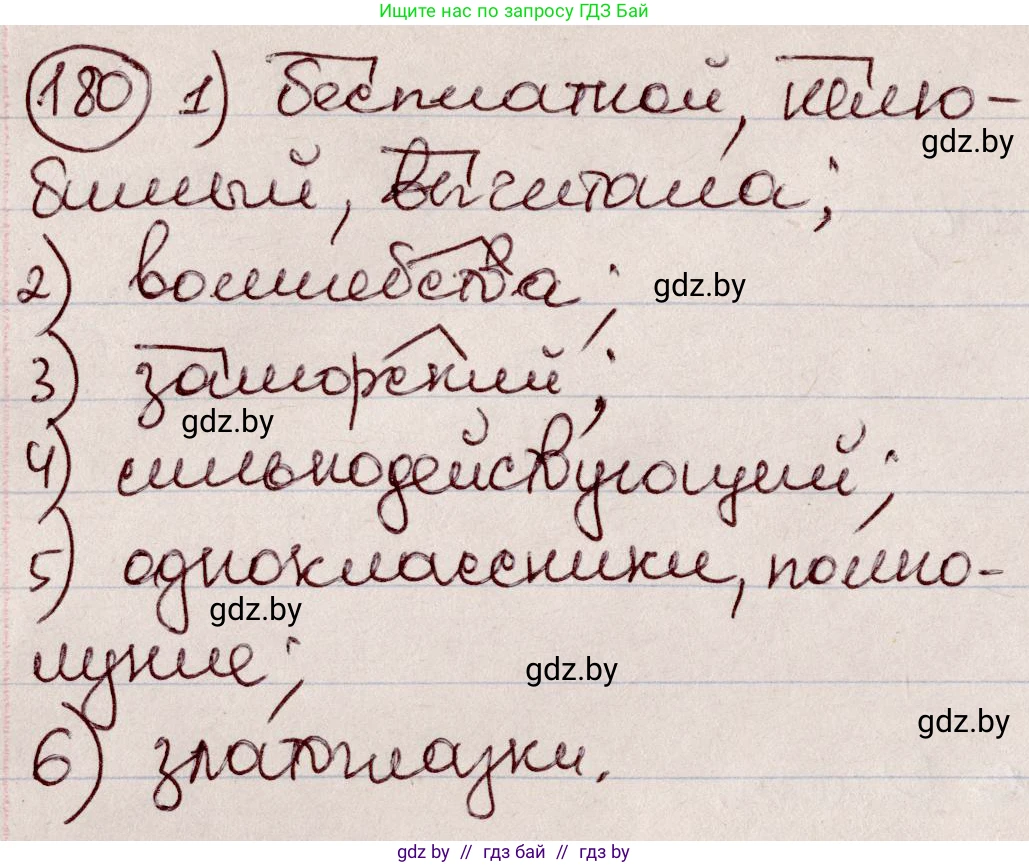 Ищите нас по запросу ГДЗ Бай
180 1) бесплатной, нелю-
gdz.by
бимый, вычитала;
2) волшебства;
gdz.by
3) заморский;
gdz.by
4) сильнодействующий;
5) одноклассники, полно-
gdz.by
луние;
gdz.by
gdz.by
6) златоглазки.
gdz.by // гдз бай // гдз by